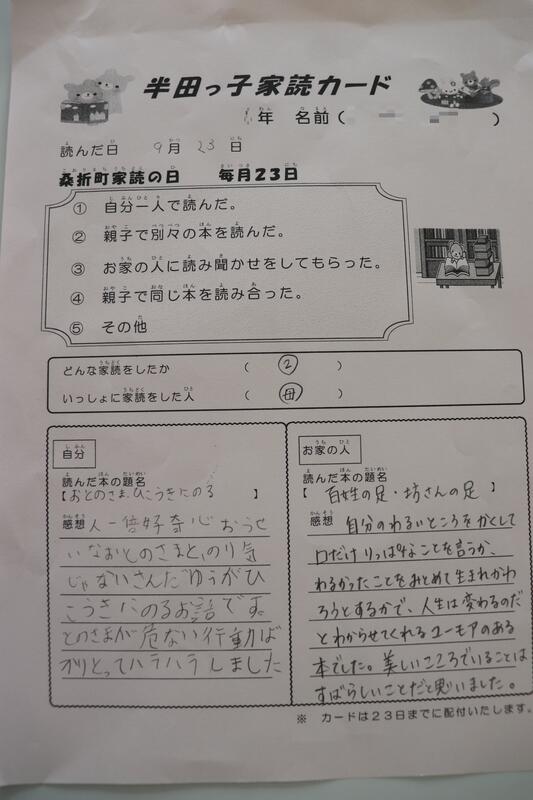 半田っ子家読カード
年 名前( )
読んだ日 9月 23 日
桑折町家読の日 毎月23日
① 自分一人で読んだ。
② 親子で別々の本を読んだ。
③ お家の人に読み聞かせをしてもらった。
④ 親子で同じ本を読み合った。
⑤ その他
どんな家読をしたか ( 2 )
いっしょに家読をした人 ( 母 )
自分
読んだ本の題名
【おとのさま、ひこうきにのる 】
感想 人一倍好奇心おうせ
いなおとのさまと、のり気
じゃないさんだゆうがひ
こうきにのるお話です。
とのさまが危ない行動ば
かりとってハラハラしました
お家の人
読んだ本の題名
【 百姓の足・坊さんの足 】
感想 自分のわるいところをかくして
口だけりっぱなことを言うか、
わるかったことをみとめて生まれかわ
ろうとするかで、人生は変わるのだ
とわからせてくれるユーモアのある
本でした。美しいこころでいることは
すばらしいことだと思いました。
※ カードは23日までに配付いたします。